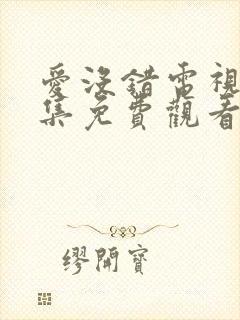 愛沒錯電視
集免費觀看
繆開寶